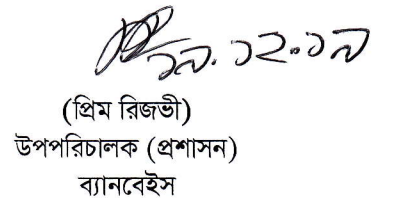 ১৯.১২.১৯
(প্রিম রিজভী)
উপপরিচালক (প্রশাসন)
ব্যানবেইস